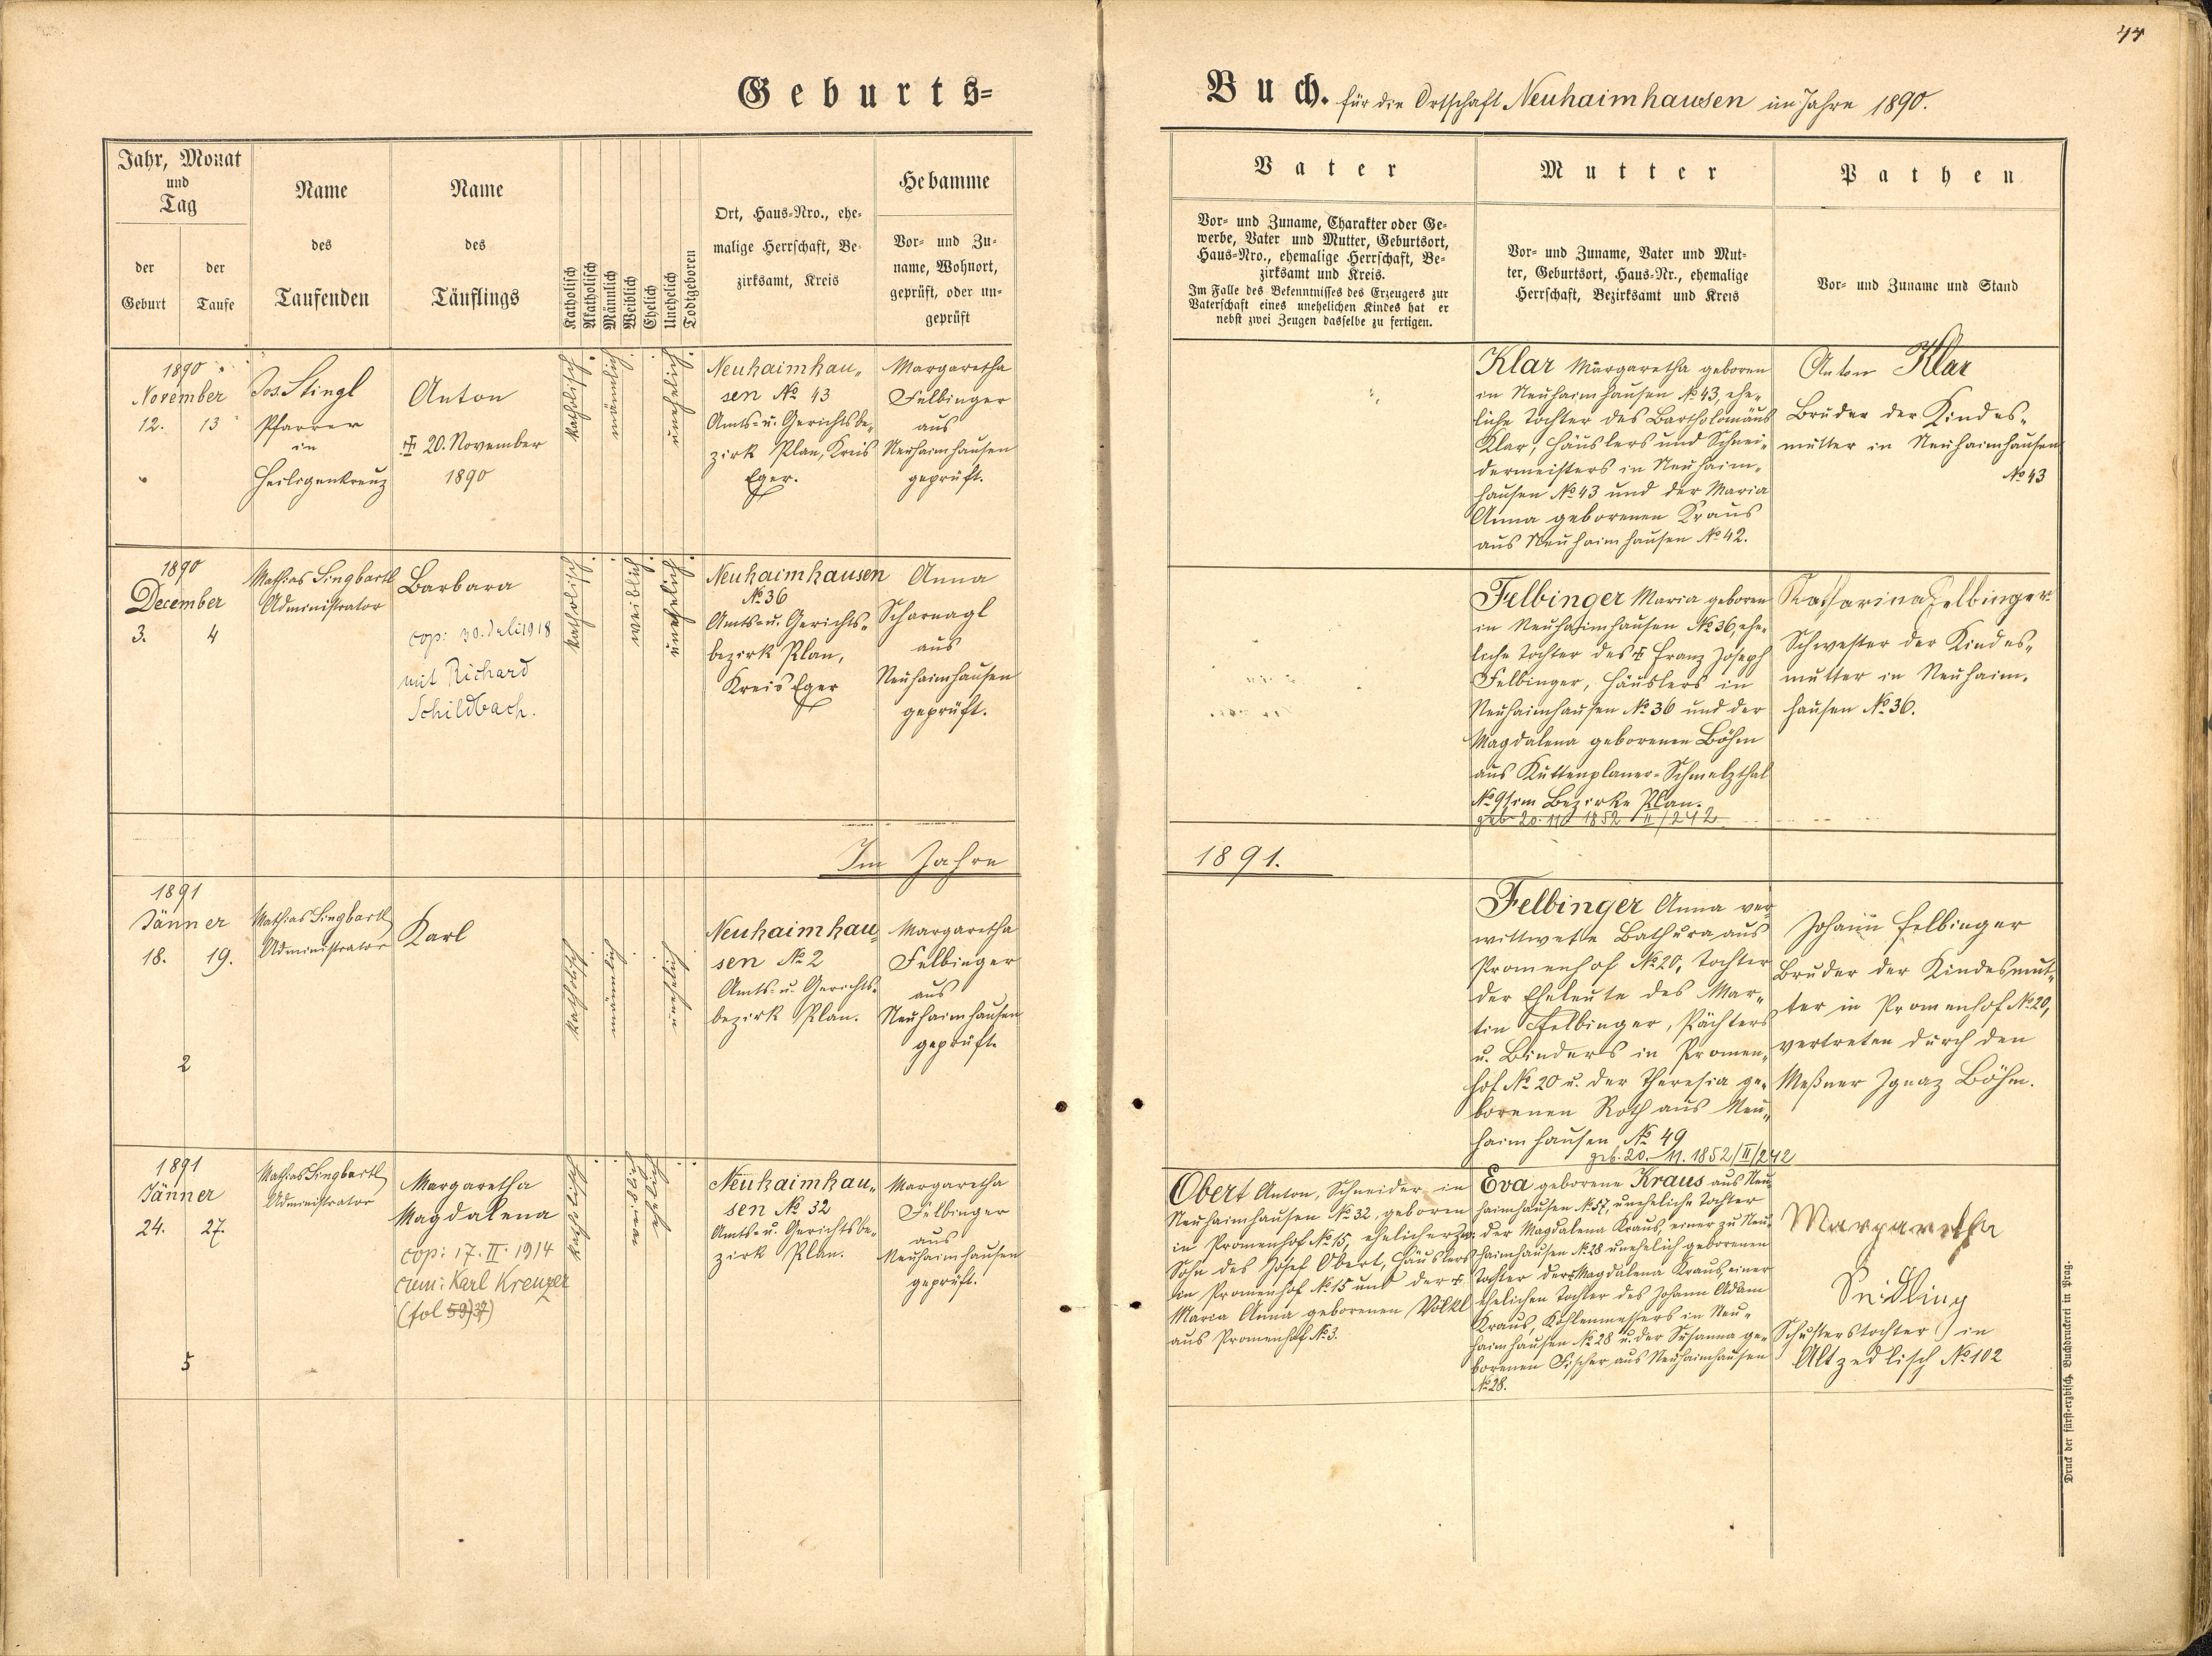 44
Geburts=
Buch. für die Ortschaft Neuhaimhausen im Jahre 1890.
Jahr, Monat
und
Tag
der
Geburt
der
Taufe
Name
des
Taufenden
Name
des
Täuflings
Katholisch
Akatholisch
Männlich
Weiblich
Ehelich
Unehelich
Todtgeboren
Ort, Haus=Nro., ehe=
malige Herrschaft, Be=
zirksamt, Kreis
Hebamme
Vor= und Zu=
name, Wohnort,
geprüft, oder un=
geprüft
Vater
Vor= und Zuname, Charakter oder Ge=
werbe, Vater und Mutter, Geburtsort,
Haus=Nro., ehemalige Herrschaft, Be=
zirksamt und Kreis.
Im Falle des Bekenntnisses des Erzeugers zur
Vaterschaft eines unehelichen Kindes hat er
nebst zwei Zeugen dasselbe zu fertigen.
Mutter
Vor= und Zuname, Vater und Mut=
ter, Geburtsort, Haus=Nr., ehemalige
Herrschaft, Bezirksamt und Kreis
Pathen
Vor= und Zuname und Stand
1890
November
12. 13
Jos. Stingl
Pfarrer
in
Heiligenkreuz
Anton
20. November
1890
katholisch
männlich
unehelich
Neuhaimhau„
sen № 43
Amts= u. Gerichtsbe„
zirk Plan, Kreis
Eger.
Margaretha
Felbinger
aus
Neuhaimhausen
geprüft.
Klar Margaretha geboren
in Neuhaimhausen № 43, ehe„
liche Tochter des Bartholomäus
Klar, Häuslers und Schnei=
dermeisters in Neuhaim„
hausen № 43 und der Maria
Anna geborenen Kraus
aus Neuhaimhausen № 42.
Anton Klar
Bruder der Kindes„
mutter in Neuhaimhausen
№ 43
1890
December
3. 4
Mathias Singbartl
Administrator
Barbara
cop: 30. Juli 1918
mit Richard
Schildbach.
katholisch
weiblich
unehelich
Neuhaimhausen
№ 36
Amts= u. Gerichts„
bezirk Plan,
Kreis Eger
Anna
Scharnagl
aus
Neuhaimhausen
geprüft.
Felbinger Maria geboren
in Neuhaimhausen № 36, ehe„
liche Tochter des Franz Joseph
Felbinger, Häuslers in
Neuhaimhausen № 36 und der
Magdalena geborenen Böhm
aus Kuttenplaner=Schmelzthal
№ 91 im Bezirke Plan.
geb 20. 11. 1852 II/242
Katharina Felbinger
Schwester der Kindes„
mutter in Neuhaim„
hausen № 36.
Im Jahre
1891.
1891
Jänner
18. 19.
2
Mathias Singbartl
Administrator
Karl
katholisch
männlich
unehelich
Neuhaimhau„
sen № 2
Amts= u. Gerichts„
bezirk Plan.
Margaretha
Felbinger
aus
Neuhaimhausen
geprüft.
Felbinger Anna ver„
wittwete Bathura aus
Promenhof № 20, Tochter
der Eheleute des Mar„
tin Felbinger, Pächters
u. Binders in Promen„
hof № 20 u. der Theresia ge„
borenen Roth aus Neu„
haimhausen № 49
geb. 20. 11. 1852/II/242
Johann Felbinger
Bruder der Kindesmut„
ter in Promenhof № 20,
vertreten durch den
Meßner Ignaz Böhm.
1891
Jänner
24. 27.
5
Mathias Singbartl
Administrator
Margaretha
Magdalena
cop: 17. II. 1914
cum: Karl Kreuzer
(fol 59) 37)
katholisch
weiblich
ehelich
Neuhaimhau„
sen № 32
Amts= u. Gerichtsbe„
zirk Plan.
Margaretha
Felbinger
aus
Neuhaimhausen
geprüft.
Obert Anton, Schneider in
Neuhaimhausen № 32, geboren
in Promenhof № 15, ehelicher
Sohn des Josef Obert, Häuslers
in Promenhof № 15 und der
Maria Anna geborenen Völkl
aus Promenhof № 3.
Eva geborene Kraus aus Neu„
haimhausen № 57, uneheliche Tochter
der Magdalena Kraus, einer zu Neu„
haimhausen № 28 unehelich geborenen
Tochter der Magdalena Kraus, einer
ehelichen Tochter des Johann Adam
Kraus, Kohlenmessers in Neu„
haimhausen № 28 u. der Susanna ge„
borenen Fischer aus Neuhaimhausen
№ 28.
Margaretha
Seidling
Schusterstochter in
Altzedlisch № 102
Druck der fürst=erzbisch. Buchdruckerei in Prag.